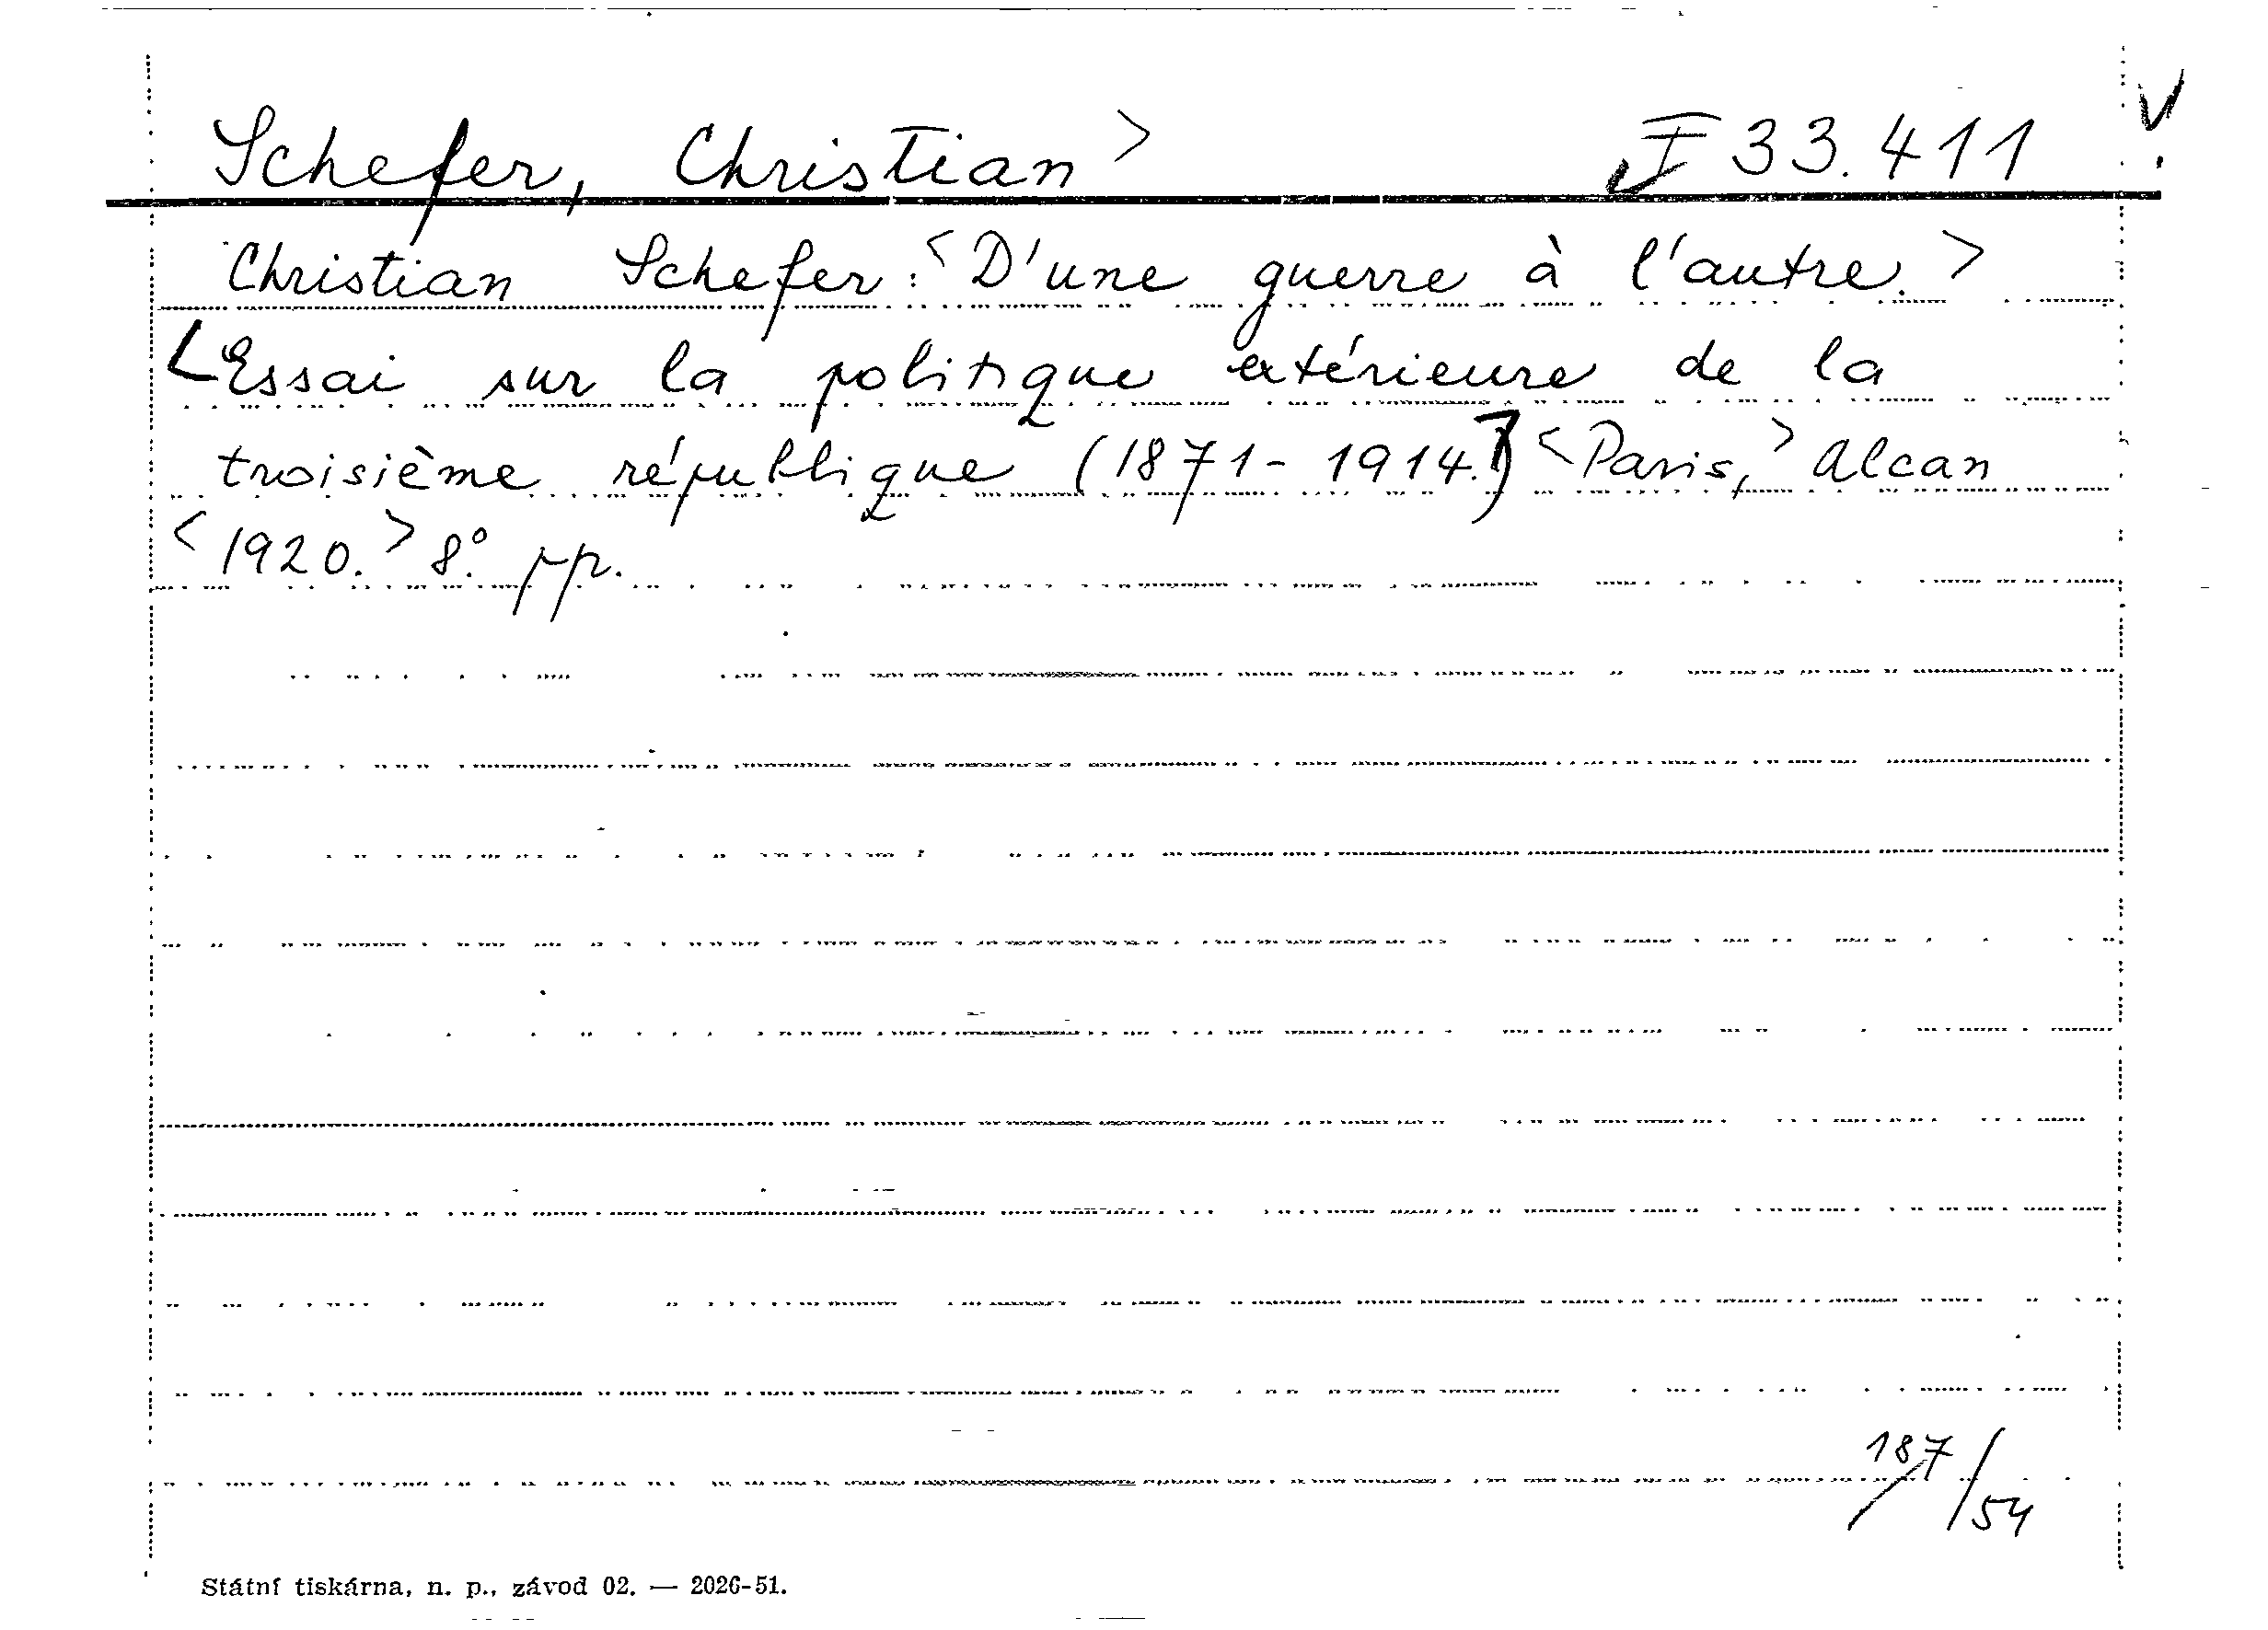 Schefer, Christian> I 33.411 V
Christian Schefer: <D'une guerre à l'autre.>
[Essai sur la politique extérieure de la
troisième république (1871-1914.)] <Paris,> Alcan
<1920.> 8°. pp.
187/54
Státní tiskárna, n. p., závod 02. — 2026-51.